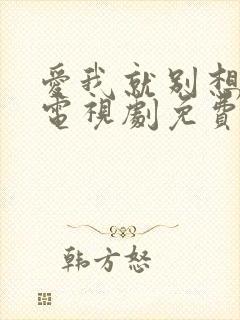 愛我就別想
電視劇免費
韩方怒